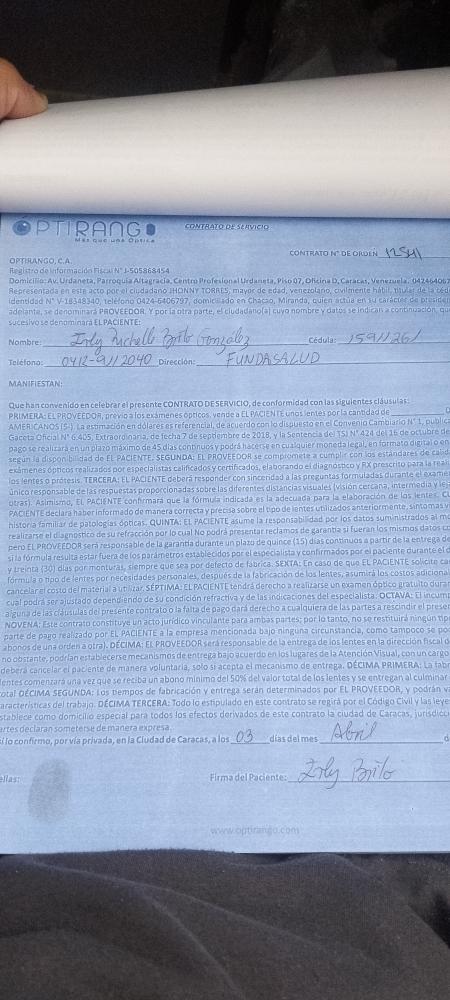 OPTIRANGO
Más que una Óptica
CONTRATO DE SERVICIO
CONTRATO N° DE ORDEN
OPTIRANGO, C.A.
Registro de Información Fiscal N° J-505868454
Domicilio: Av. Urdaneta, Parroquia Altagracia, Centro Profesional Urdaneta, Piso 07, Oficina D, Caracas, Venezuela. 04246406
Representada en este acto por el ciudadano JHONNY TORRES, mayor de edad, venezolano, civilmente hábil, titular de la céd
identidad N° V-18348340, teléfono 0424-6406797, domiciliado en Chacao, Miranda, quien actúa en su carácter de preside
adelante, se denominará PROVEEDOR. Y por la otra parte, el ciudadano(a) cuyo nombre y datos se indican a continuación, qu
sucesivo se denominará EL PACIENTE:
Nombre: Brito González Cédula: 15911261
Teléfono: 0412-9112040 Dirección: FUNDASALUD
MANIFIESTAN:
Que han convenido en celebrar el presente CONTRATO DE SERVICIO, de conformidad con las siguientes cláusulas:
PRIMERA: EL PROVEEDOR, previo a los exámenes ópticos, vende a EL PACIENTE unos lentes por la cantidad de
AMERICANOS ($-). La estimación en dólares es referencial, de acuerdo con lo dispuesto en el Convenio Cambiario N° 1, public
Gaceta Oficial N° 6.405, Extraordinaria, de fecha 7 de septiembre de 2018, y la Sentencia del TSJ N° 424 del 16 de octubre de
pago se realizará en un plazo máximo de 45 días continuos y podrá hacerse en cualquier moneda legal, en formato digital o en
según la disponibilidad de EL PACIENTE. SEGUNDA: EL PROVEEDOR se compromete a cumplir con los estándares de calid
exámenes ópticos realizados por especialistas calificados y certificados, elaborando el diagnóstico y RX prescrito para la real
los lentes o prótesis. TERCERA: EL PACIENTE deberá responder con sinceridad a las preguntas formuladas durante el exame
único responsable de las respuestas proporcionadas sobre las diferentes distancias visuales (visión cercana, intermedia y lej
otras). Asimismo, EL PACIENTE confirmará que la fórmula indicada es la adecuada para la elaboración de los lentes.
PACIENTE declara haber informado de manera correcta y precisa sobre el tipo de lentes utilizados anteriormente, síntomas
historia familiar de patologías ópticas. QUINTA: EL PACIENTE asume la responsabilidad por los datos suministrados al m
realizarse el diagnóstico de su refracción por lo cual No podrá presentar reclamos de garantía si fueran los mismos datos
pero EL PROVEEDOR será responsable de la garantía durante un plazo de quince (15) días continuos a partir de la entrega de
si la fórmula resulta estar fuera de los parámetros establecidos por el especialista y confirmados por el paciente durante el
y treinta (30) días por monturas, siempre que sea por defecto de fabrica. SEXTA: En caso de que EL PACIENTE solicite ca
fórmula o tipo de lentes por necesidades personales, después de la fabricación de los lentes, asumirá los costos adicional
cancelar el costo del material a utilizar. SÉPTIMA: EL PACIENTE tendrá derecho a realizarse un examen óptico gratuito duran
cual podrá ser ajustado dependiendo de su condición refractiva y de las indicaciones del especialista. OCTAVA: El incump
alguna de las cláusulas del presente contrato o la falta de pago dará derecho a cualquiera de las partes a rescindir el presen
NOVENA: Este contrato constituye un acto jurídico vinculante para ambas partes; por lo tanto, no se restituirá ningún tip
parte de pago realizado por EL PACIENTE a la empresa mencionada bajo ninguna circunstancia, como tampoco se po
abonos de una orden a otra). DÉCIMA: EL PROVEEDOR será responsable de la entrega de los lentes en la dirección fiscal d
no obstante, podrían establecerse mecanismos de entrega bajo acuerdo en los lugares de la Atención Visual, con un cargo
deberá cancelar el paciente de manera voluntaria, solo si acepta el mecanismo de entrega. DÉCIMA PRIMERA: La fabr
lentes comenzará una vez que se reciba un abono mínimo del 50% del valor total de los lentes y se entregan al culminar
total DÉCIMA SEGUNDA: Los tiempos de fabricación y entrega serán determinados por EL PROVEEDOR, y podrán va
aracterísticas del trabajo. DÉCIMA TERCERA: Todo lo estipulado en este contrato se regirá por el Código Civil y las leye
stablece como domicilio especial para todos los efectos derivados de este contrato la ciudad de Caracas, jurisdicc
artes declaran someterse de manera expresa.
sí lo confirmo, por vía privada, en la Ciudad de Caracas, a los 03 días del mes Abril d
ellas: Firma del Paciente: Irly Brito
www.optirango.com